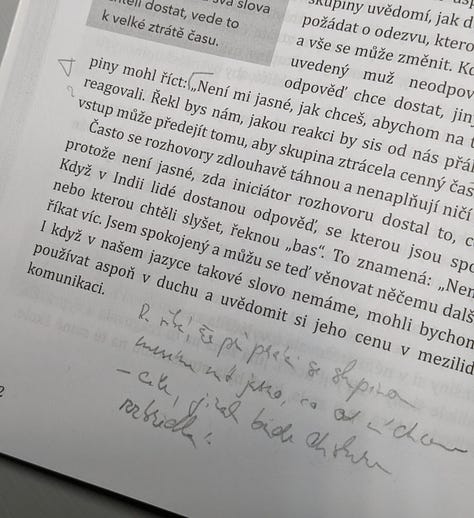 svá slova
chtěli dostat, vede to
k velké ztrátě času.
skupiny uvědomí, jak d
požádat o odezvu, ktero
a vše se může změnit. Ko
uvedený muž neodpov
odpověď chce dostat, jiný
piny mohl říct: „Není mi jasné, jak chceš, abychom na t
reagovali. Řekl bys nám, jakou reakci by sis od nás přál
vstup může předejít tomu, aby skupina ztrácela cenný čas
Často se rozhovory zdlouhavě táhnou a nenaplňují ničí
protože není jasné, zda iniciátor rozhovoru dostal to, c
Když v Indii lidé dostanou odpověď, se kterou jsou spo
nebo kterou chtěli slyšet, řeknou „bas“. To znamená: „Nem
říkat víc. Jsem spokojený a můžu se teď věnovat něčemu dalš
I když v našem jazyce takové slovo nemáme, mohli bychom
používat aspoň v duchu a uvědomit si jeho cenu v mezilid
komunikaci.
R. říká, že při práci se skupinou
musíme mít jasno, co od ní chceme
– cíl, jinak bude diskuse